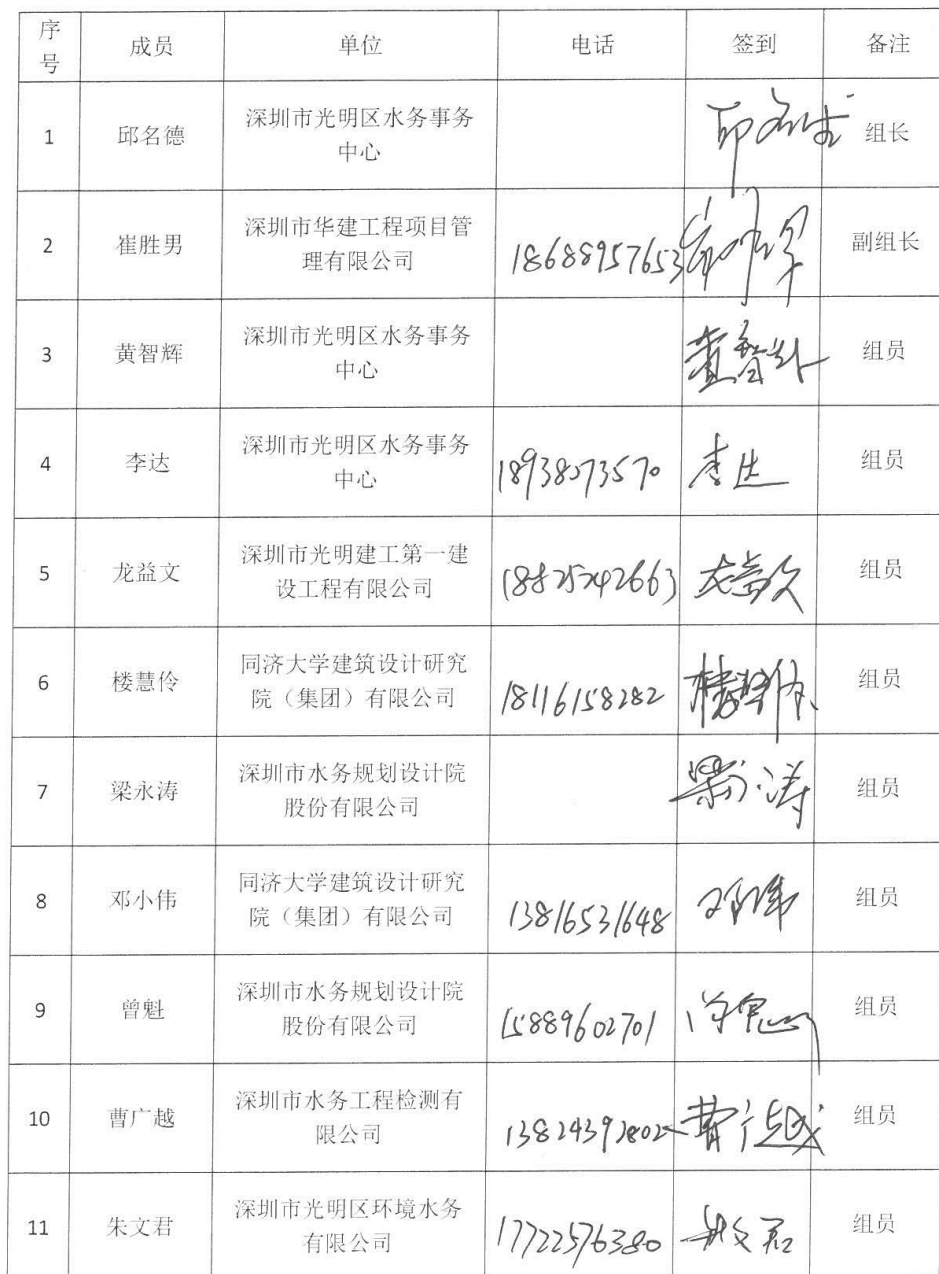 序号 成员 单位 电话 签到 备注
1 邱名德 深圳市光明区水务事务中心 组长
2 崔胜男 深圳市华建工程项目管理有限公司 18688957653 副组长
3 黄智辉 深圳市光明区水务事务中心 黄智辉 组员
4 李达 深圳市光明区水务事务中心 18938073570 李达 组员
5 龙益文 深圳市光明建工第一建设工程有限公司 18825242663 龙益文 组员
6 楼慧伶 同济大学建筑设计研究院（集团）有限公司 18116158282 楼慧伶 组员
7 梁永涛 深圳市水务规划设计院股份有限公司 梁永涛 组员
8 邓小伟 同济大学建筑设计研究院（集团）有限公司 13816531648 邓小伟 组员
9 曾魁 深圳市水务规划设计院股份有限公司 15889602701 组员
10 曹广越 深圳市水务工程检测有限公司 13824392802 曹广越 组员
11 朱文君 深圳市光明区环境水务有限公司 17722576380 朱文君 组员